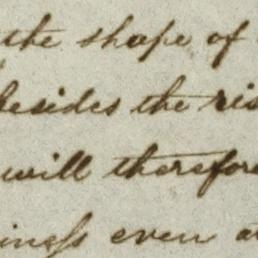 the shape of
besides the ris
will therefore
iness even a